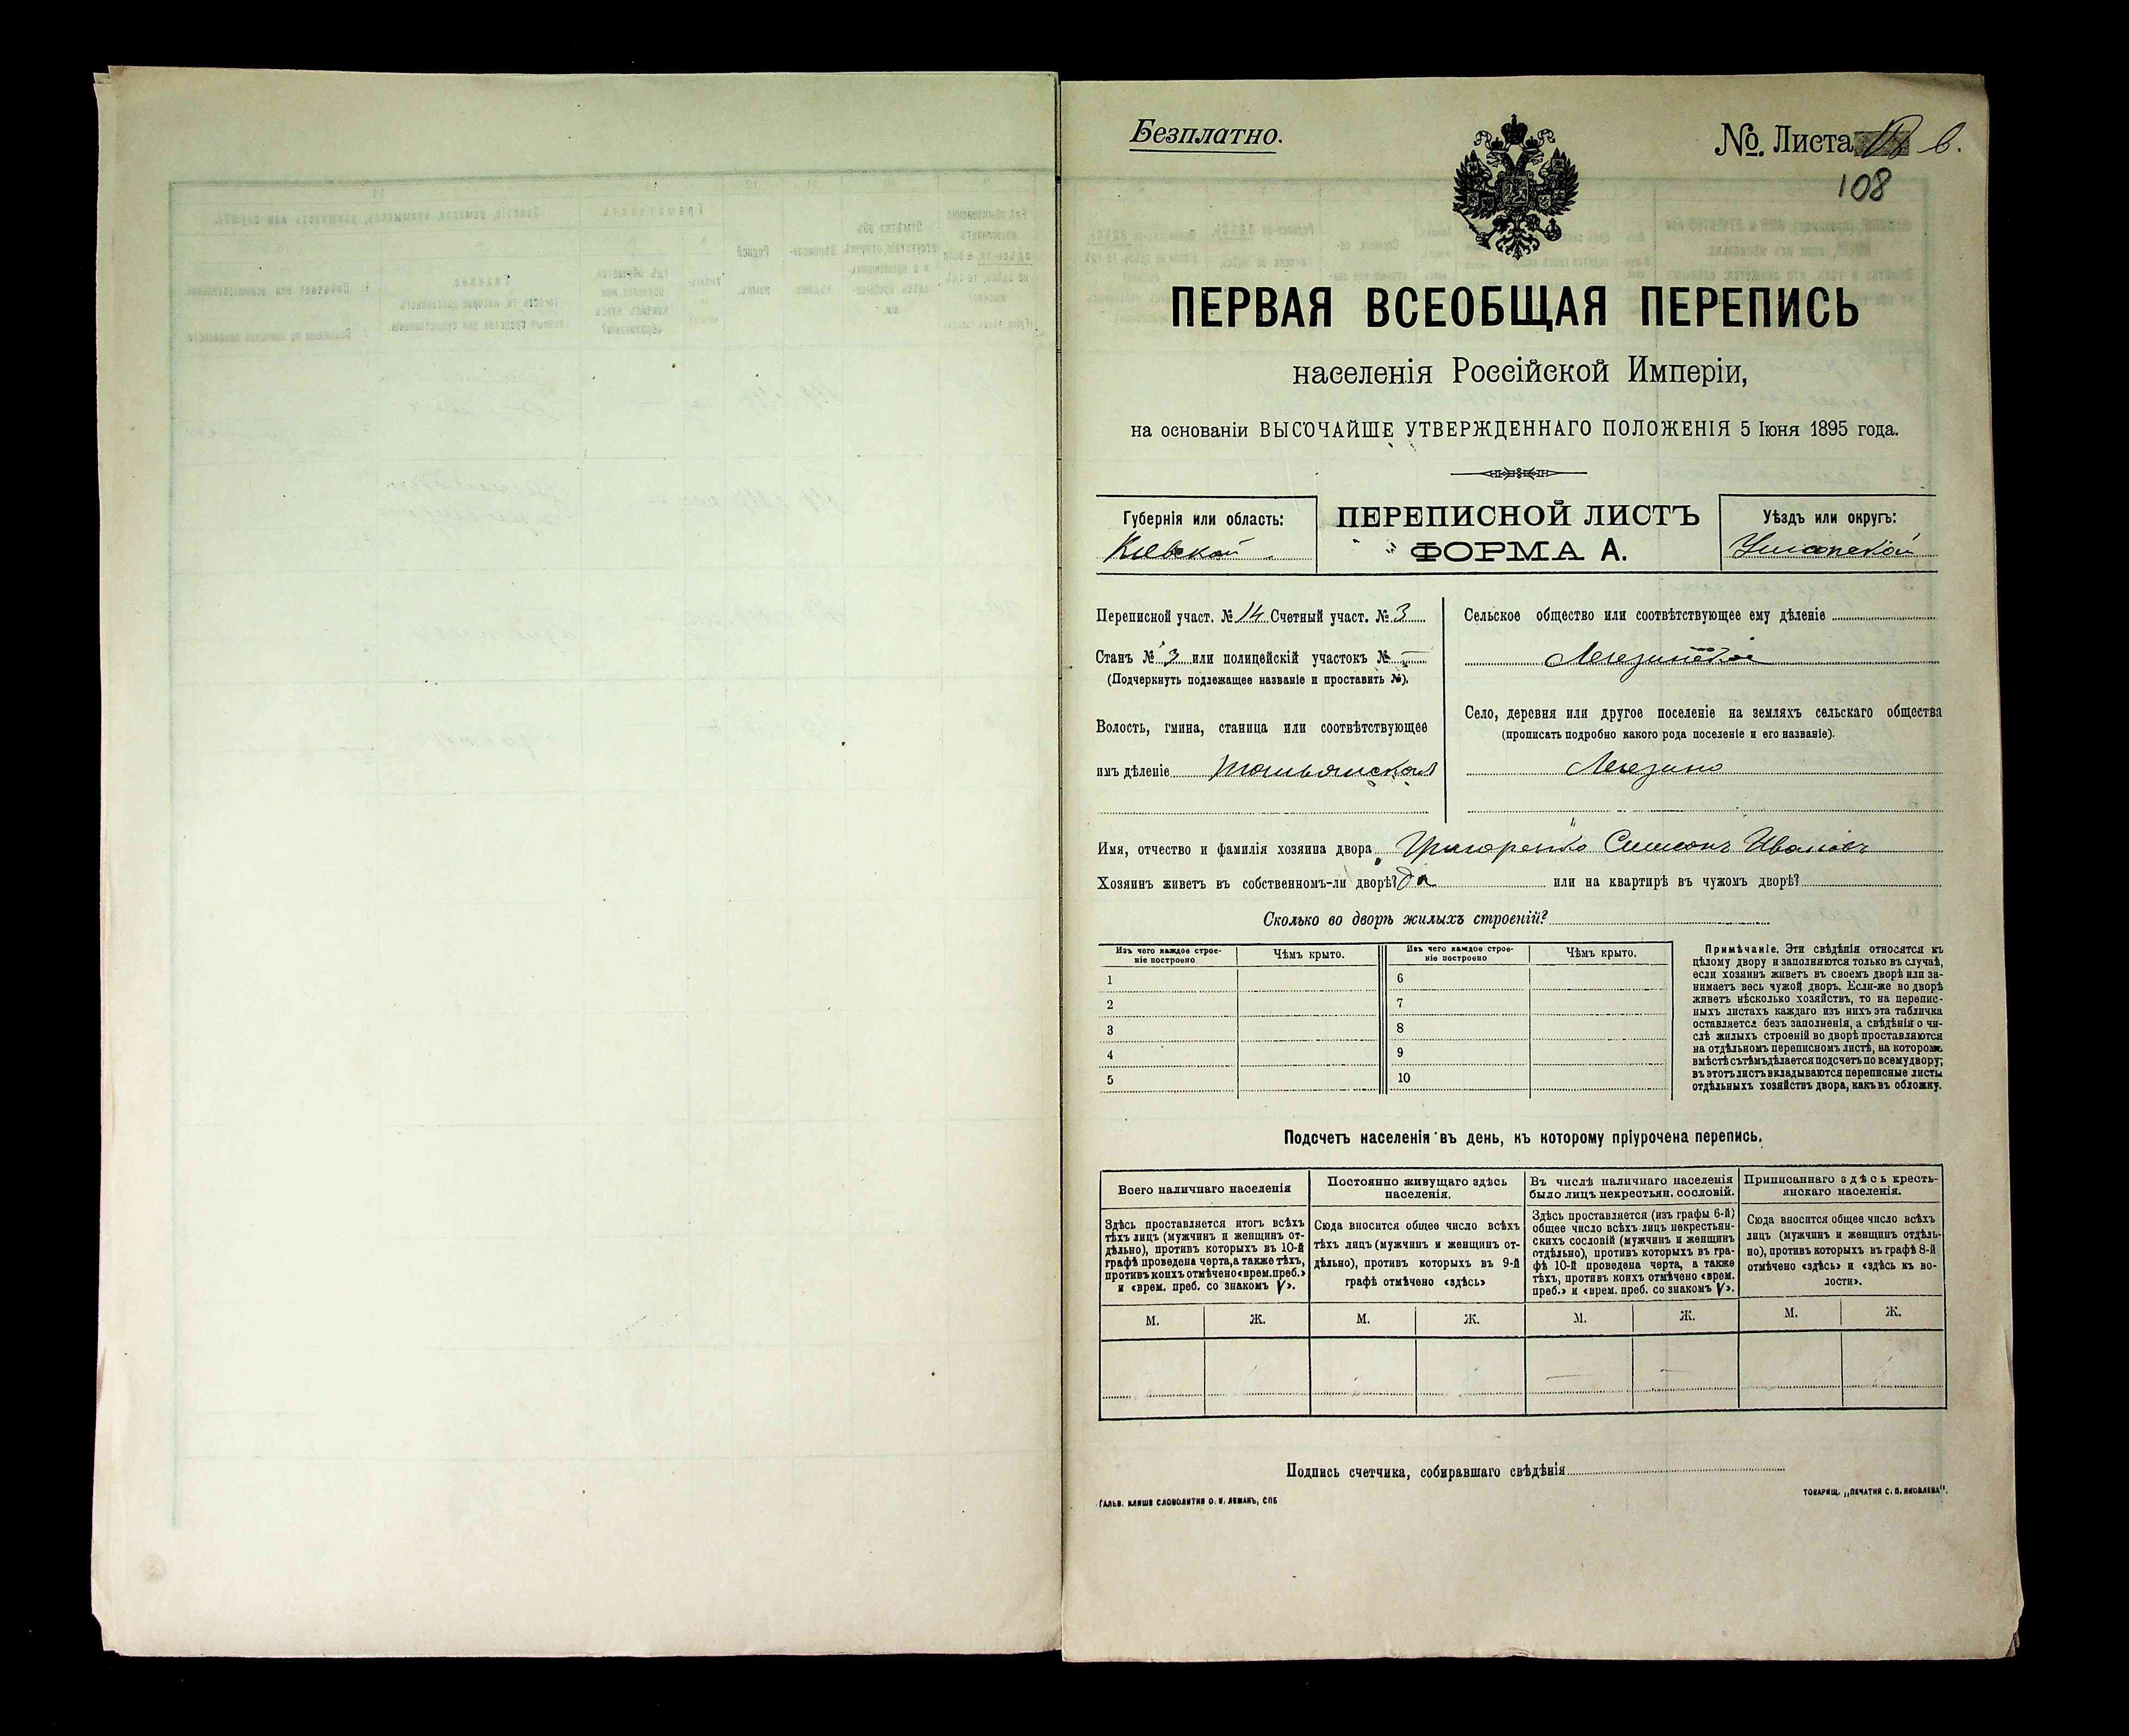 Безплатно.
№. Листа
в.
108
ПЕРВАЯ ВСЕОБЩАЯ ПЕРЕПИСЬ
населенія Россійской Имперіи,
на основаніи ВЫСОЧАЙШЕ УТВЕРЖДЕННАГО ПОЛОЖЕНІЯ 5 Іюня 1895 года.
Губернія или область:
Кіевская
ПЕРЕПИСНОЙ ЛИСТЪ
ФОРМА А.
Уѣздъ или округъ:
Уманскій
Переписной участ. № 14 Счетный участ. № 3
Станъ № 3 или полицейскій участокъ № —
(Подчеркнуть подлежащее названіе и проставить №).
Волость, гмина, станица или соотвѣтствующее
имъ дѣленіе Тальянская
Сельское общество или соотвѣтствующее ему дѣленіе
Легезинское
Село, деревня или другое поселеніе на земляхъ сельскаго общества
(прописать подробно какого рода поселеніе и его названіе).
Легезино
Имя, отчество и фамилія хозяина двора Григоренко Симеонъ Ивановъ
Хозяинъ живетъ въ собственномъ-ли дворѣ? да или на квартирѣ въ чужомъ дворѣ?
Сколько во дворѣ жилыхъ строеній?
Изъ чего каждое строе-
ніе построено
Чѣмъ крыто.
Изъ чего каждое строе-
ніе построено
Чѣмъ крыто.
1
2
3
4
5
6
7
8
9
10
Примѣчаніе. Эти свѣдѣнія относятся къ
цѣлому двору и заполняются только въ случаѣ,
если хозяинъ живетъ въ своемъ дворѣ или за-
нимаетъ весь чужой дворъ. Если-же во дворѣ
живетъ нѣсколько хозяйствъ, то на перепис-
ныхъ листахъ каждаго изъ нихъ эта табличка
оставляется безъ заполненія, а свѣдѣнія о чи-
слѣ жилыхъ строеній во дворѣ проставляются
на отдѣльномъ переписномъ листѣ, на которомъ
вмѣстѣ съ тѣмъ дѣлается подсчетъ по всему двору;
въ этотъ листъ вкладываются переписные листы
отдѣльныхъ хозяйствъ двора, какъ въ обложку.
Подсчетъ населенія въ день, къ которому пріурочена перепись.
Всего наличнаго населенія
Здѣсь проставляется итогъ всѣхъ
тѣхъ лицъ (мужчинъ и женщинъ от-
дѣльно), противъ которыхъ въ 10-й
графѣ проведена черта, а также тѣхъ,
противъ коихъ отмѣчено «врем. преб.»
и «врем. преб. со знакомъ V».
Постоянно живущаго здѣсь
населенія.
Сюда вносится общее число всѣхъ
тѣхъ лицъ (мужчинъ и женщинъ от-
дѣльно), противъ которыхъ въ 9-й
графѣ отмѣчено «здѣсь»
Въ числѣ наличнаго населенія
было лицъ некрестьян. сословій.
Здѣсь проставляется (изъ графы 6-й)
общее число всѣхъ лицъ некрестьян-
скихъ сословій (мужчинъ и женщинъ
отдѣльно), противъ которыхъ въ гра-
фѣ 10-й проведена черта, а также
тѣхъ, противъ коихъ отмѣчено «врем.
преб.» и «врем. преб. со знакомъ V».
Приписаннаго здѣсь кресть-
янскаго населенія.
Сюда вносится общее число всѣхъ
лицъ (мужчинъ и женщинъ отдѣль-
но), противъ которыхъ въ графѣ 8-й
отмѣчено «здѣсь» и «здѣсь къ во-
лости».
М. Ж. М. Ж. М. Ж. М. Ж.
Подпись счетчика, собиравшаго свѣдѣнія
ГАЛЬВ. КЛИШЕ СЛОВОЛИТНИ О. И. ЛЕМАНЪ, СПБ
ТОВАРИЩ. „ПЕЧАТНЯ С. П. ЯКОВЛЕВА".